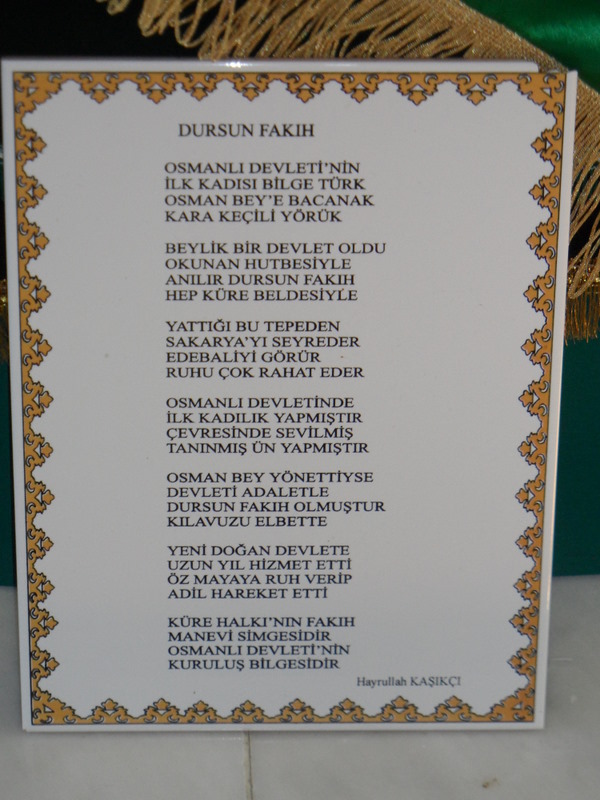 DURSUN FAKIH
OSMANLI DEVLETİ'NİN
İLK KADISI BİLGE TÜRK
OSMAN BEY'E BACANAK
KARA KEÇİLİ YÖRÜK
BEYLİK BİR DEVLET OLDU
OKUNAN HUTBESİYLE
ANILIR DURSUN FAKIH
HEP KÜRE BELDESİYLE
YATTIĞI BU TEPEDEN
SAKARYA'YI SEYREDER
EDEBALİYİ GÖRÜR
RUHU ÇOK RAHAT EDER
OSMANLI DEVLETİNDE
İLK KADILIK YAPMIŞTIR
ÇEVRESİNDE SEVİLMİŞ
TANINMIŞ ÜN YAPMIŞTIR
OSMAN BEY YÖNETTİYSE
DEVLETİ ADALETLE
DURSUN FAKIH OLMUŞTUR
KILAVUZU ELBETTE
YENİ DOĞAN DEVLETE
UZUN YIL HİZMET ETTİ
ÖZ MAYAYA RUH VERİP
ADİL HAREKET ETTİ
KÜRE HALKI'NIN FAKIH
MANEVİ SİMGESİDİR
OSMANLI DEVLETİ'NİN
KURULUŞ BİLGESİDİR
Hayrullah KAŞIKÇI